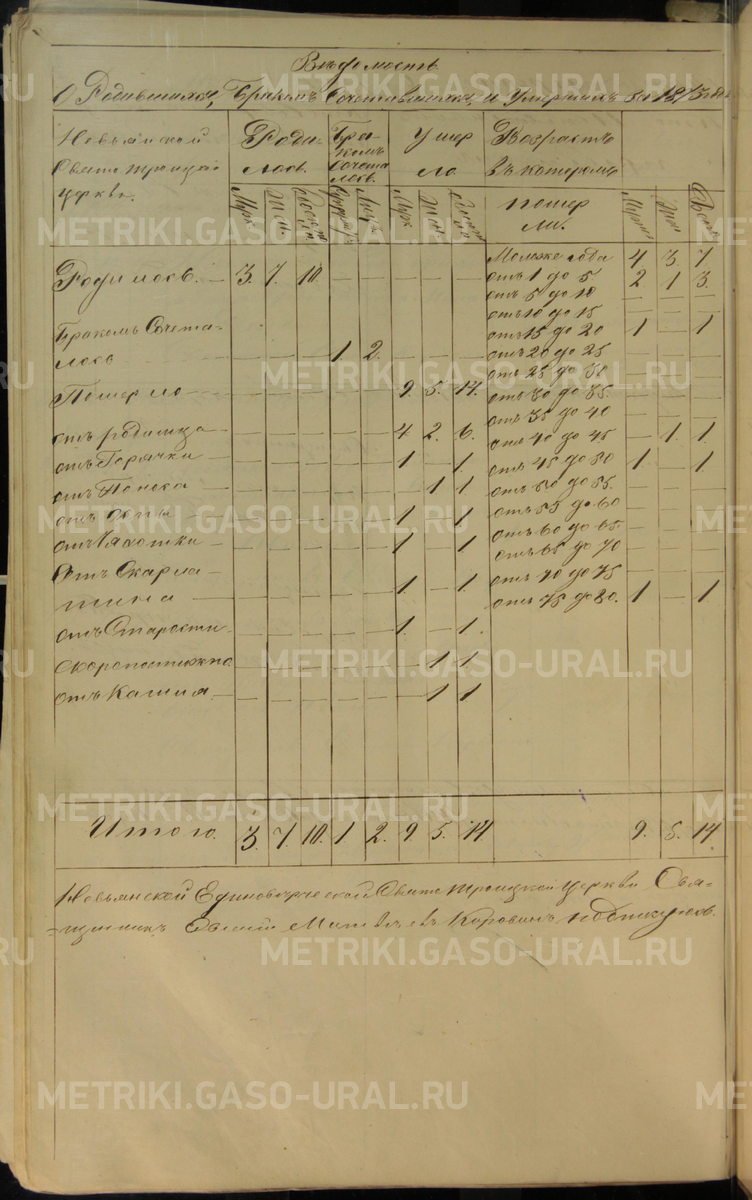 Ведомость
О Родившихся, Браком Сочетавшихся, и Умерших за 1873 год
Невьянской Свято троицкой церкви.
Родилось. Браком Сочеталось. Умерло Возраст в котором померли.
Муж. Жен. Обоего пола Муж. Жен. Муж. Жен. Обоего
Родилось. — 3. 7. 10. — — — — —
Браком Сочета-
лось — — — 1 2. — — —
Померло — — — — — 9. 5. 14.
отъ родимца — — — — — 4 2. 6.
отъ Горячки — — — — — 1 — 1.
отъ Поноса — — — — — — 1 1.
отъ — — — — — 1 — 1.
отъ Чахотки — — — — — 1 — 1.
Отъ Скарла-
тина — — — — — 1 — 1.
отъ Старости — — — — — 1. — 1.
Скоропостижно — — — — — — 1 1.
отъ Кашля — — — — — — 1 1
Моложе года 4 3. 7
отъ 1 до 5 2 1 3.
отъ 5 до 10 — — —
отъ 10 до 15 — — —
отъ 15 до 20 1 — 1
отъ 20 до 25 — — —
отъ 25 до 30 — — —
отъ 30 до 35. — — —
отъ 35 до 40 — — —
отъ 40 до 45 — 1 1.
отъ 45 до 50 1 — 1
отъ 50 до 55. — — —
отъ 55 до 60 — — —
отъ 60 до 65. — — —
отъ 65 до 70 — — —
отъ 70 до 75 — — —
отъ 75 до 80. 1 — 1.
Итого. 3. 7. 10. 1 2. 9. 5. 14. 9. 5. 14.
Невьянской Единоверческой Свято троицкой церкви Свя-
щенникъ Матвеевъ Коровинъ подписуюсь.
METRIKI.GASO-URAL.RU